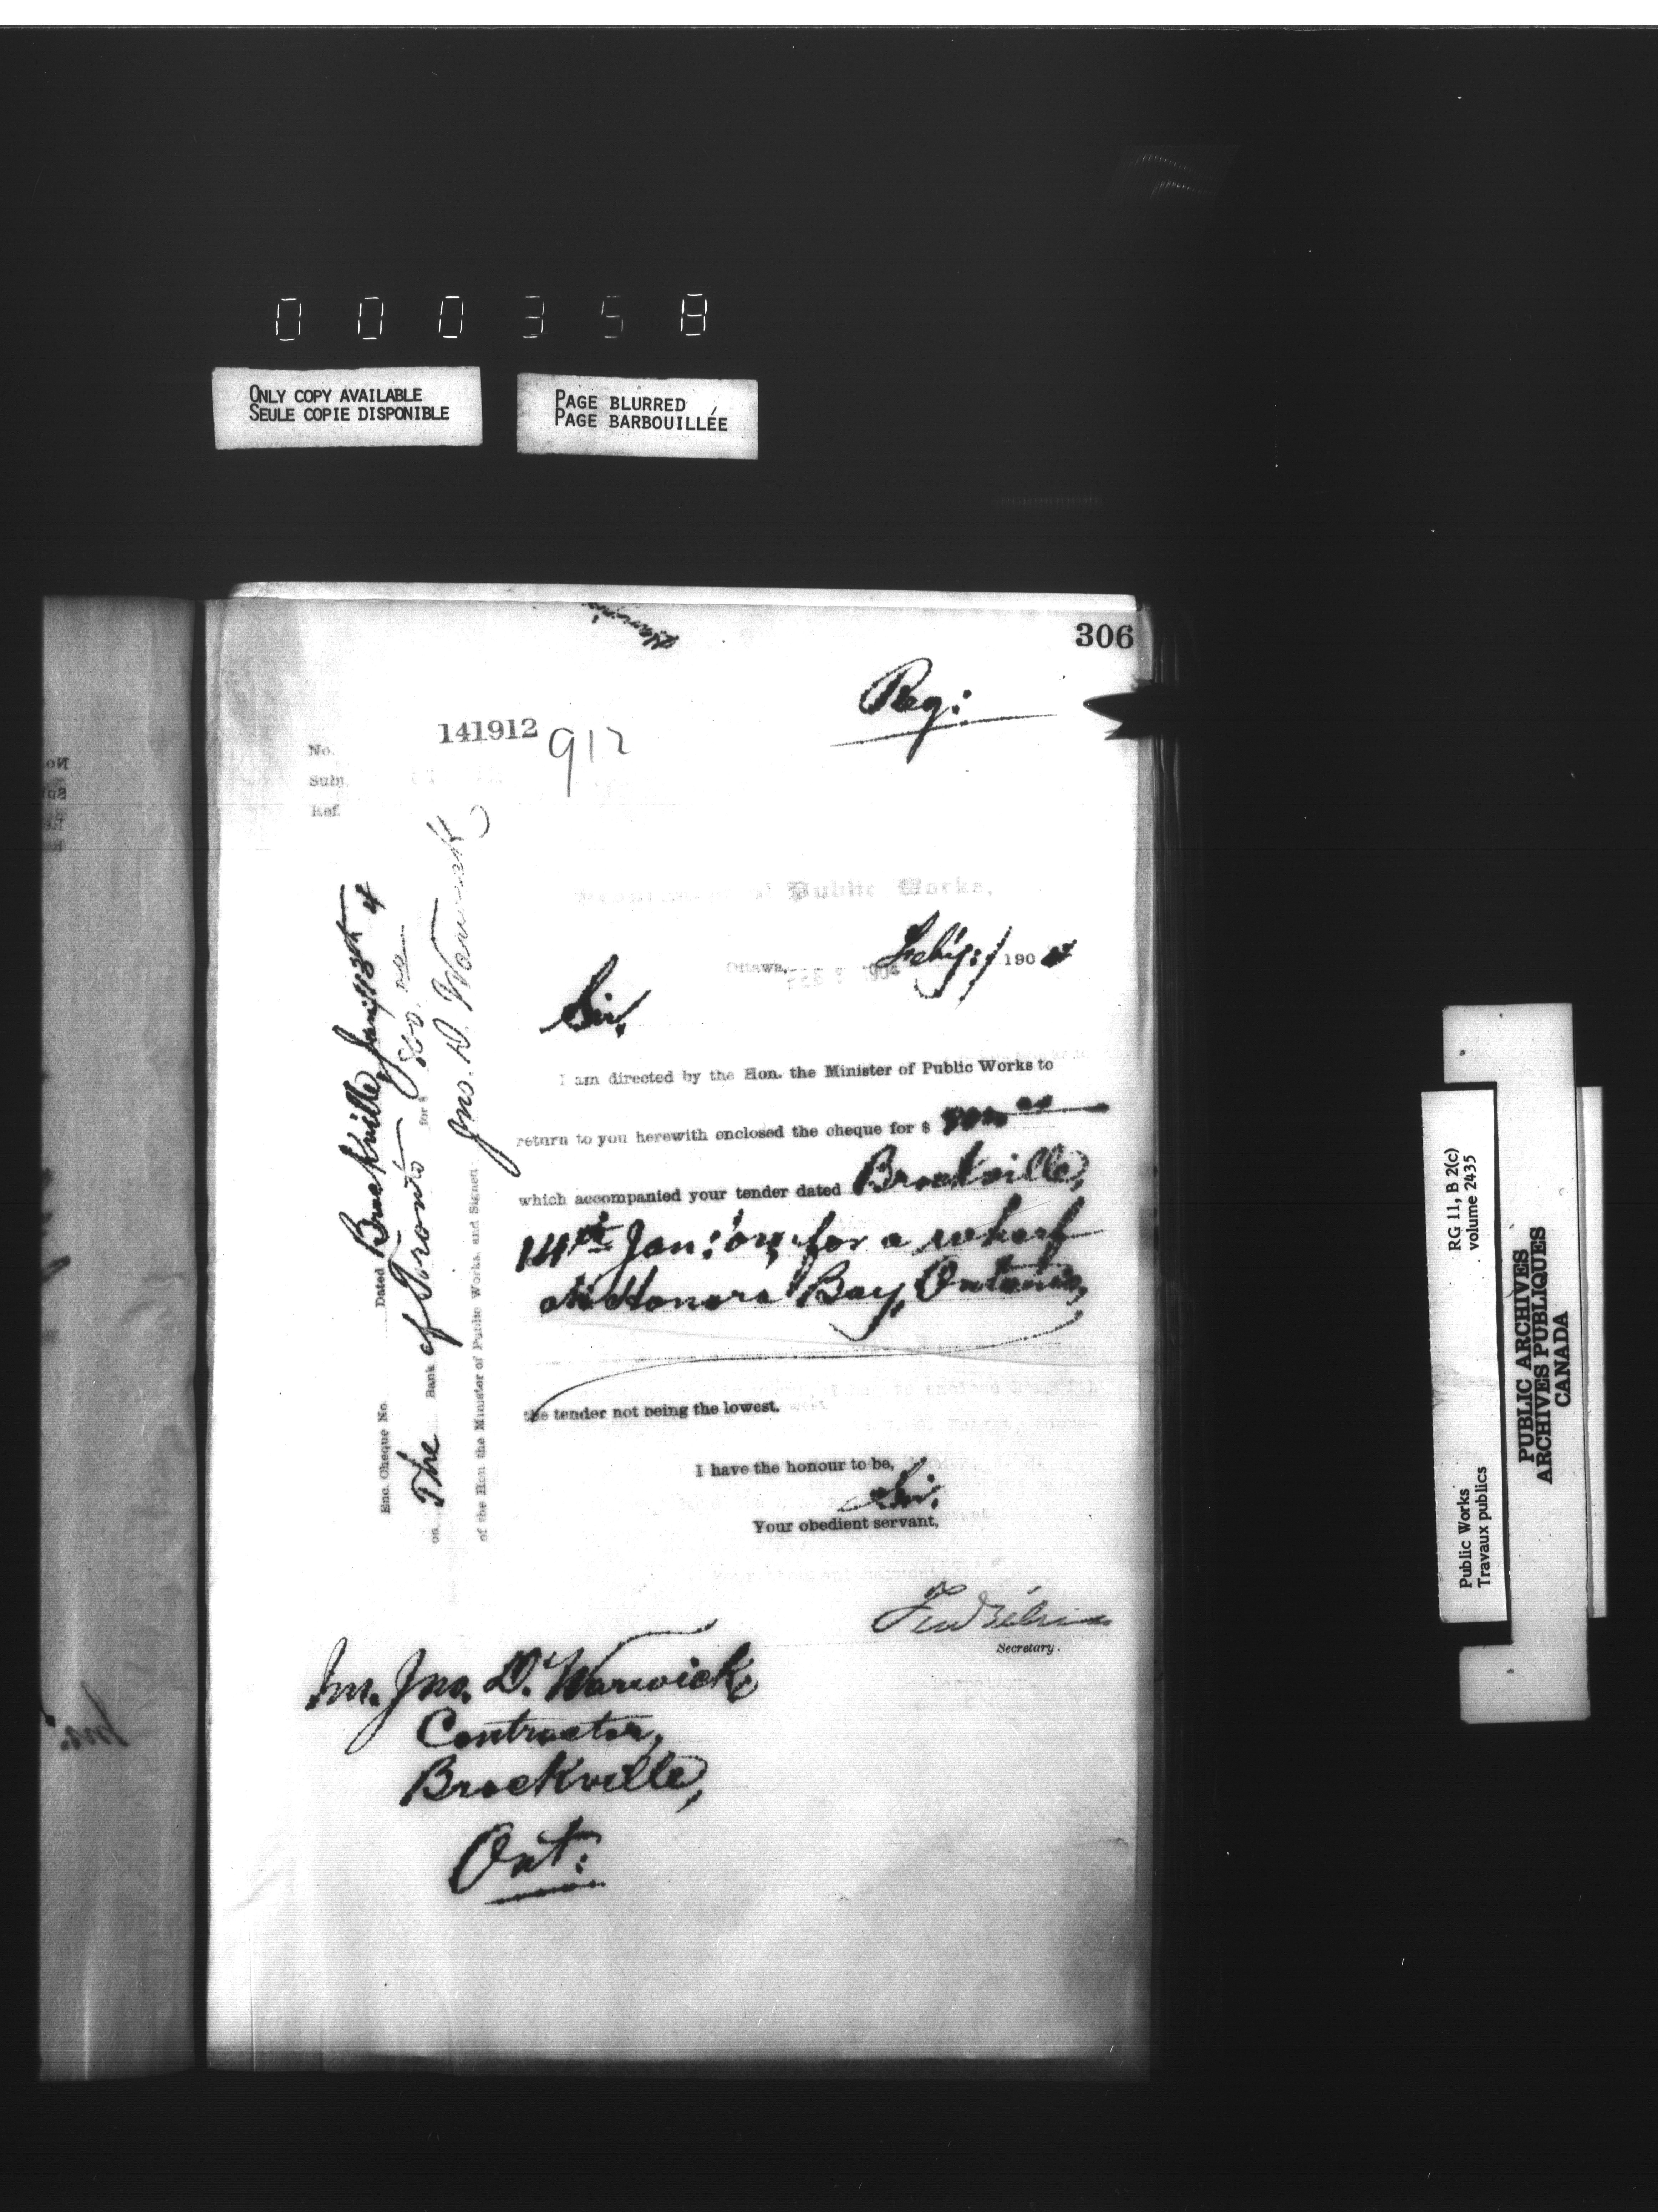 0 0 0 3 5 8
ONLY COPY AVAILABLE
SEULE COPIE DISPONIBLE
PAGE BLURRED
PAGE BARBOUILLÉE
306
Reg:
No. 141912
912
Subj.
Ref.
Public Works,
Ottawa, Feb'y: 1904
Sir,
I am directed by the Hon. the Minister of Public Works to
return to you herewith enclosed the cheque for $
which accompanied your tender dated Brockville,
14th Jan: '04, for a wharf
at Honora Bay, Ontario,
the tender not being the lowest.
I have the honour to be,
Sir,
Your obedient servant,
Secretary.
Mr. Jno. D. Warwick,
Contractor,
Brockville,
Ont:
Enc. Cheque No. Dated Brockville,
on The Bank of Toronto for $
of the Hon the Minister of Public Works, and Signed Jno. D. Warwick
RG 11, B 2(c)
volume 2435
Public Works
Travaux publics
PUBLIC ARCHIVES
ARCHIVES PUBLIQUES
CANADA